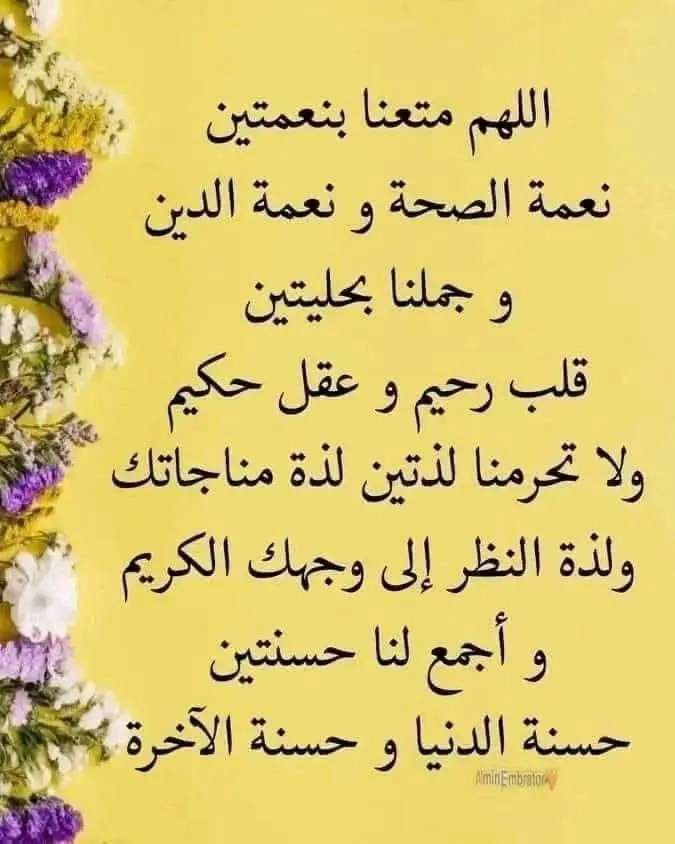 اللهم متعنا بنعمتين
نعمة الصحة و نعمة الدين
و جملنا بحليتين
قلب رحيم و عقل حكيم
ولا تحرمنا لذتين لذة مناجاتك
ولذة النظر إلى وجهك الكريم
و أجمع لنا حسنتين
حسنة الدنيا و حسنة الآخرة
AminEmbrator